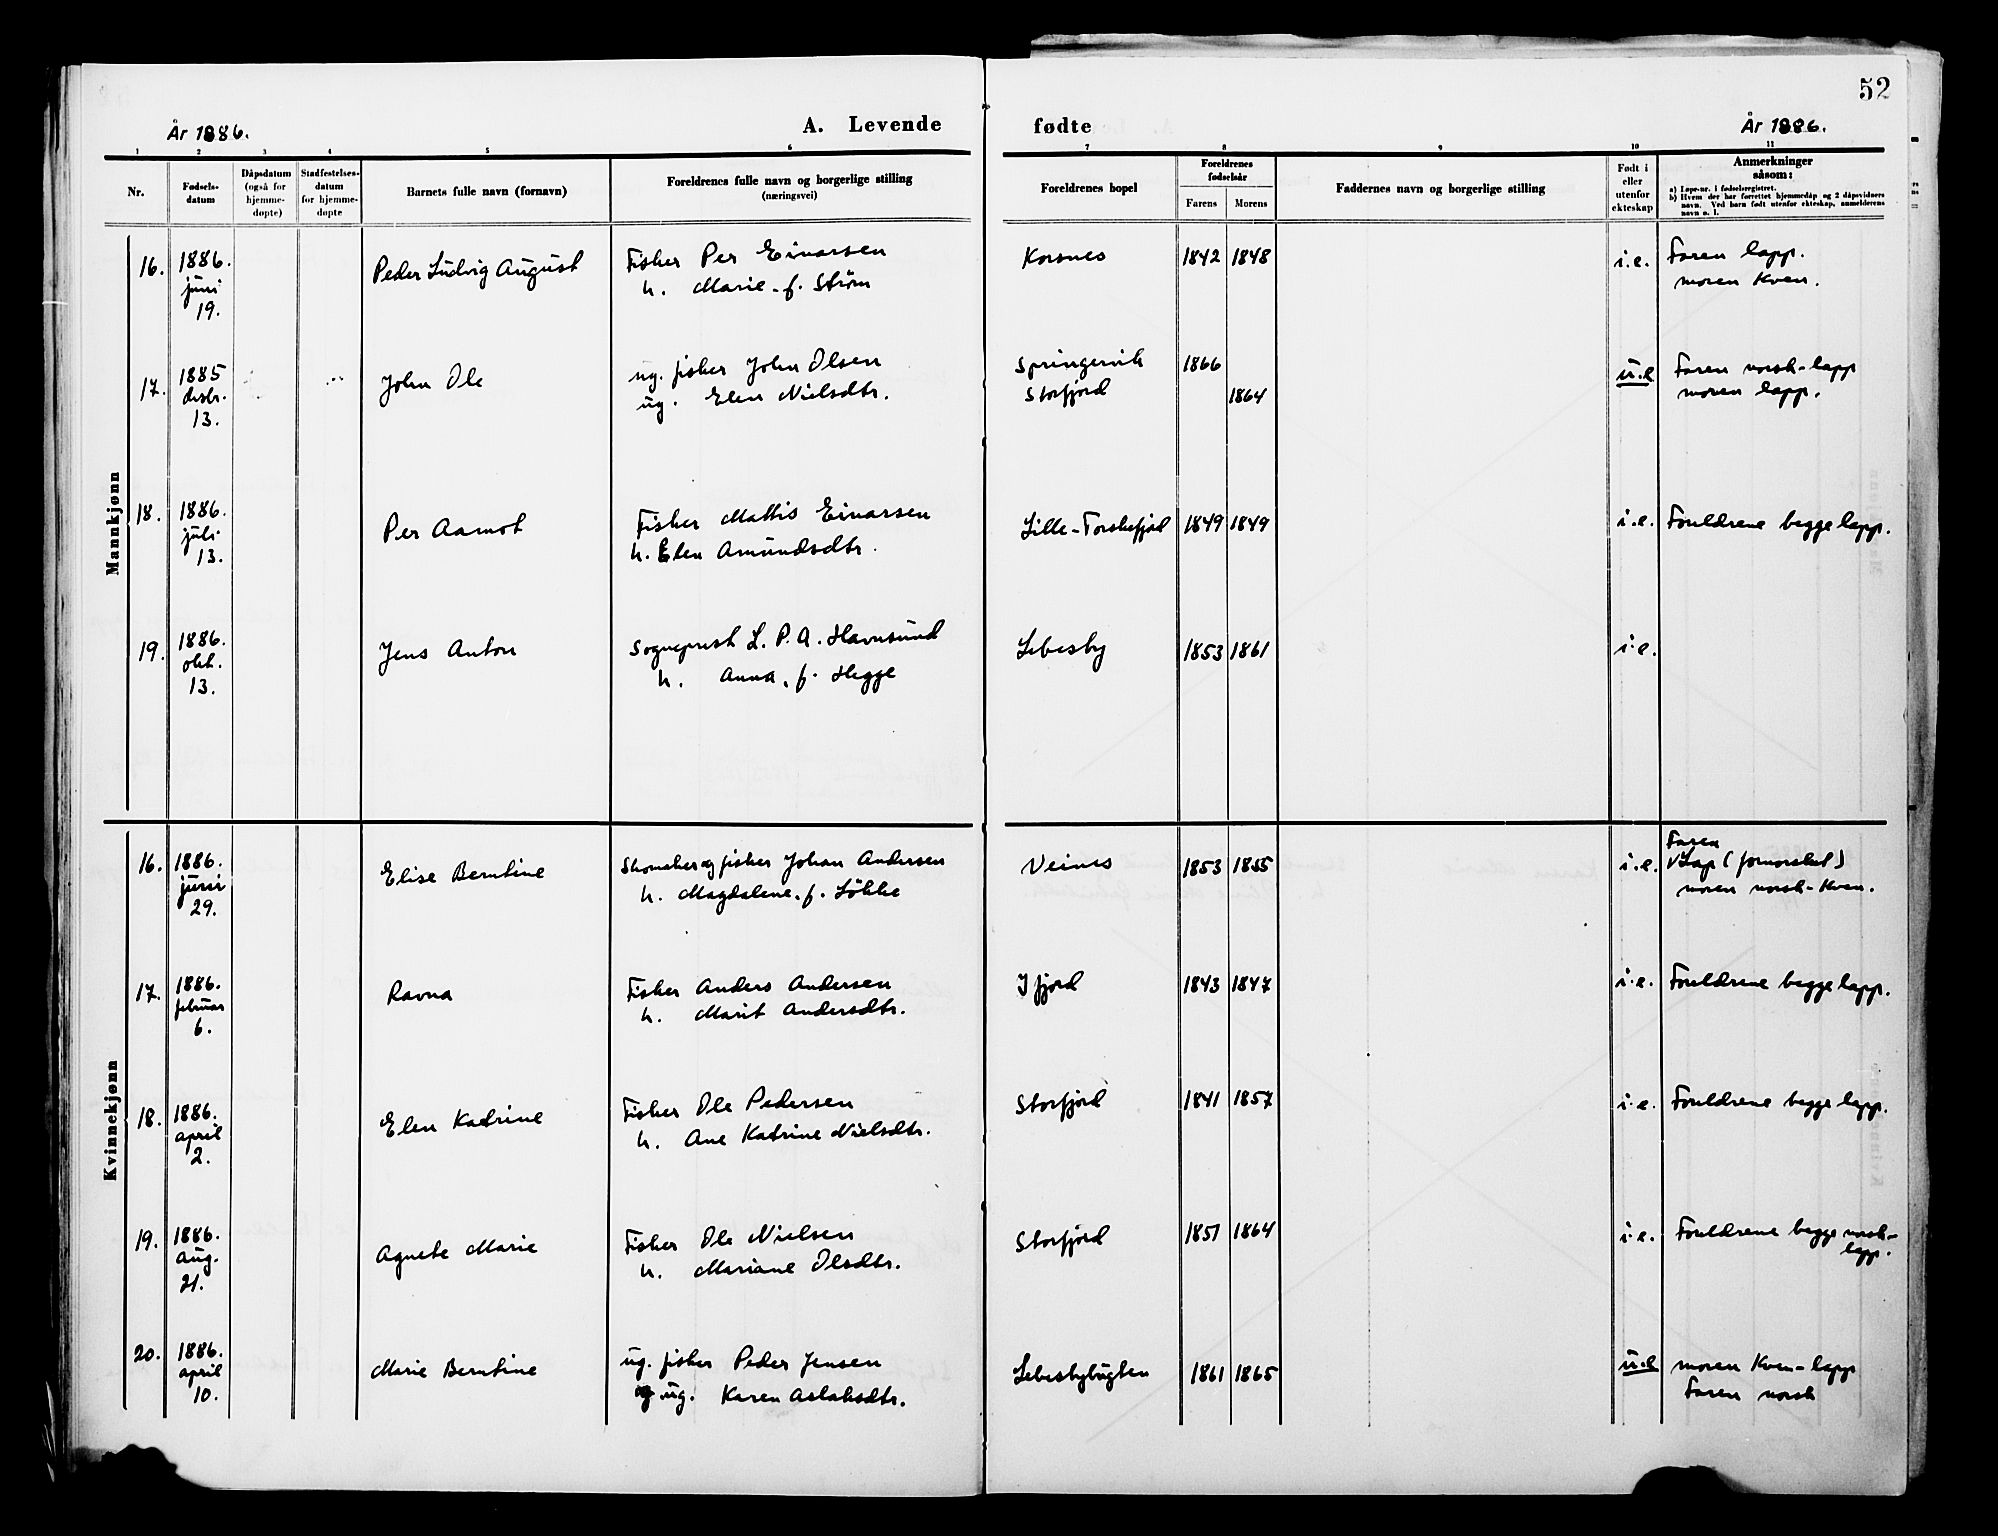 52
År 1886.
A. Levende
fødte
År 1886.
1 2 3 4 5 6 7 8 9 10 11
Nr.
Fødsels-
datum
Dåpsdatum
(også for
hjemme-
døpte)
Stadfestelses-
datum
for hjemme-
døpte
Barnets fulle navn (fornavn)
Foreldrenes fulle navn og borgerlige stilling
(næringsvei)
Foreldrenes bopel
Foreldrenes
fødselsår
Farens Morens
Faddernes navn og borgerlige stilling
Født i
eller
utenfor
ekteskap
Anmerkninger
såsom:
a) Løpe-nr. i fødselsregistret.
b) Hvem der har forrettet hjemmedåp og 2 dåpsvidners
navn. Ved barn født utenfor ekteskap, anmelderens
navn o. l.
Mannkjønn
16.
1886.
juni
19.
Peder Ludvig August
Fisker Per Einarsen
h. Marie f. Strøm
Korsnes
1842 1848
i.e.
Faren lapp.
moren Kven.
17.
1885
desbr.
13.
John Ole
ug. fisker John Olsen
ug. Elen Nielsdtr.
Springervik
Storfjord
1866
1864
u.e
Faren norsk-lapp
moren lapp.
18.
1886.
juli
13.
Per Aamot
Fisker Mattis Einarsen
h. Elen Amundsdtr.
Lille-Torskefjord
1849 1849
i.e.
Foreldrene begge lapp.
19.
1886.
okt.
13.
Jens Anton
Sogneprest L. P. A. Havnsund
h. Anna, f. Hegge
Lebesby
1853 1861
i.e.
Kvinnekjønn
16.
1886.
juni
29.
Elise Berntine
Skomaker og fisker Johan Andersen
h. Magdalene f. Løkke
Veines
1853 1855
i.e.
Faren
Lap (fornorsket)
moren norsk-Kven.
17.
1886.
februar
6.
Ravna
Fisker Anders Andersen
h. Marit Andersdtr.
Ifjord
1843 1847
i.e.
Foreldrene begge lapp.
18.
1886.
april
2.
Elen Katrine
Fisker Ole Pedersen
h. Ane Katrine Nielsdtr.
Storfjord
1841 1857
i.e.
Foreldrene begge lapp.
19.
1886.
aug.
21.
Agnete Marie
Fisker Ole Nielsen
h. Mariane Olsdtr.
Storfjord
1851 1864
i.e.
Foreldrene begge norsk-
lapp.
20.
1886.
april
10.
Marie Berntine
ug. fisker Peder Jensen
og ug. Karen Aslaksdtr.
Lebesbybugten
1861 1865
u.e
moren Kven-lapp
Faren norsk